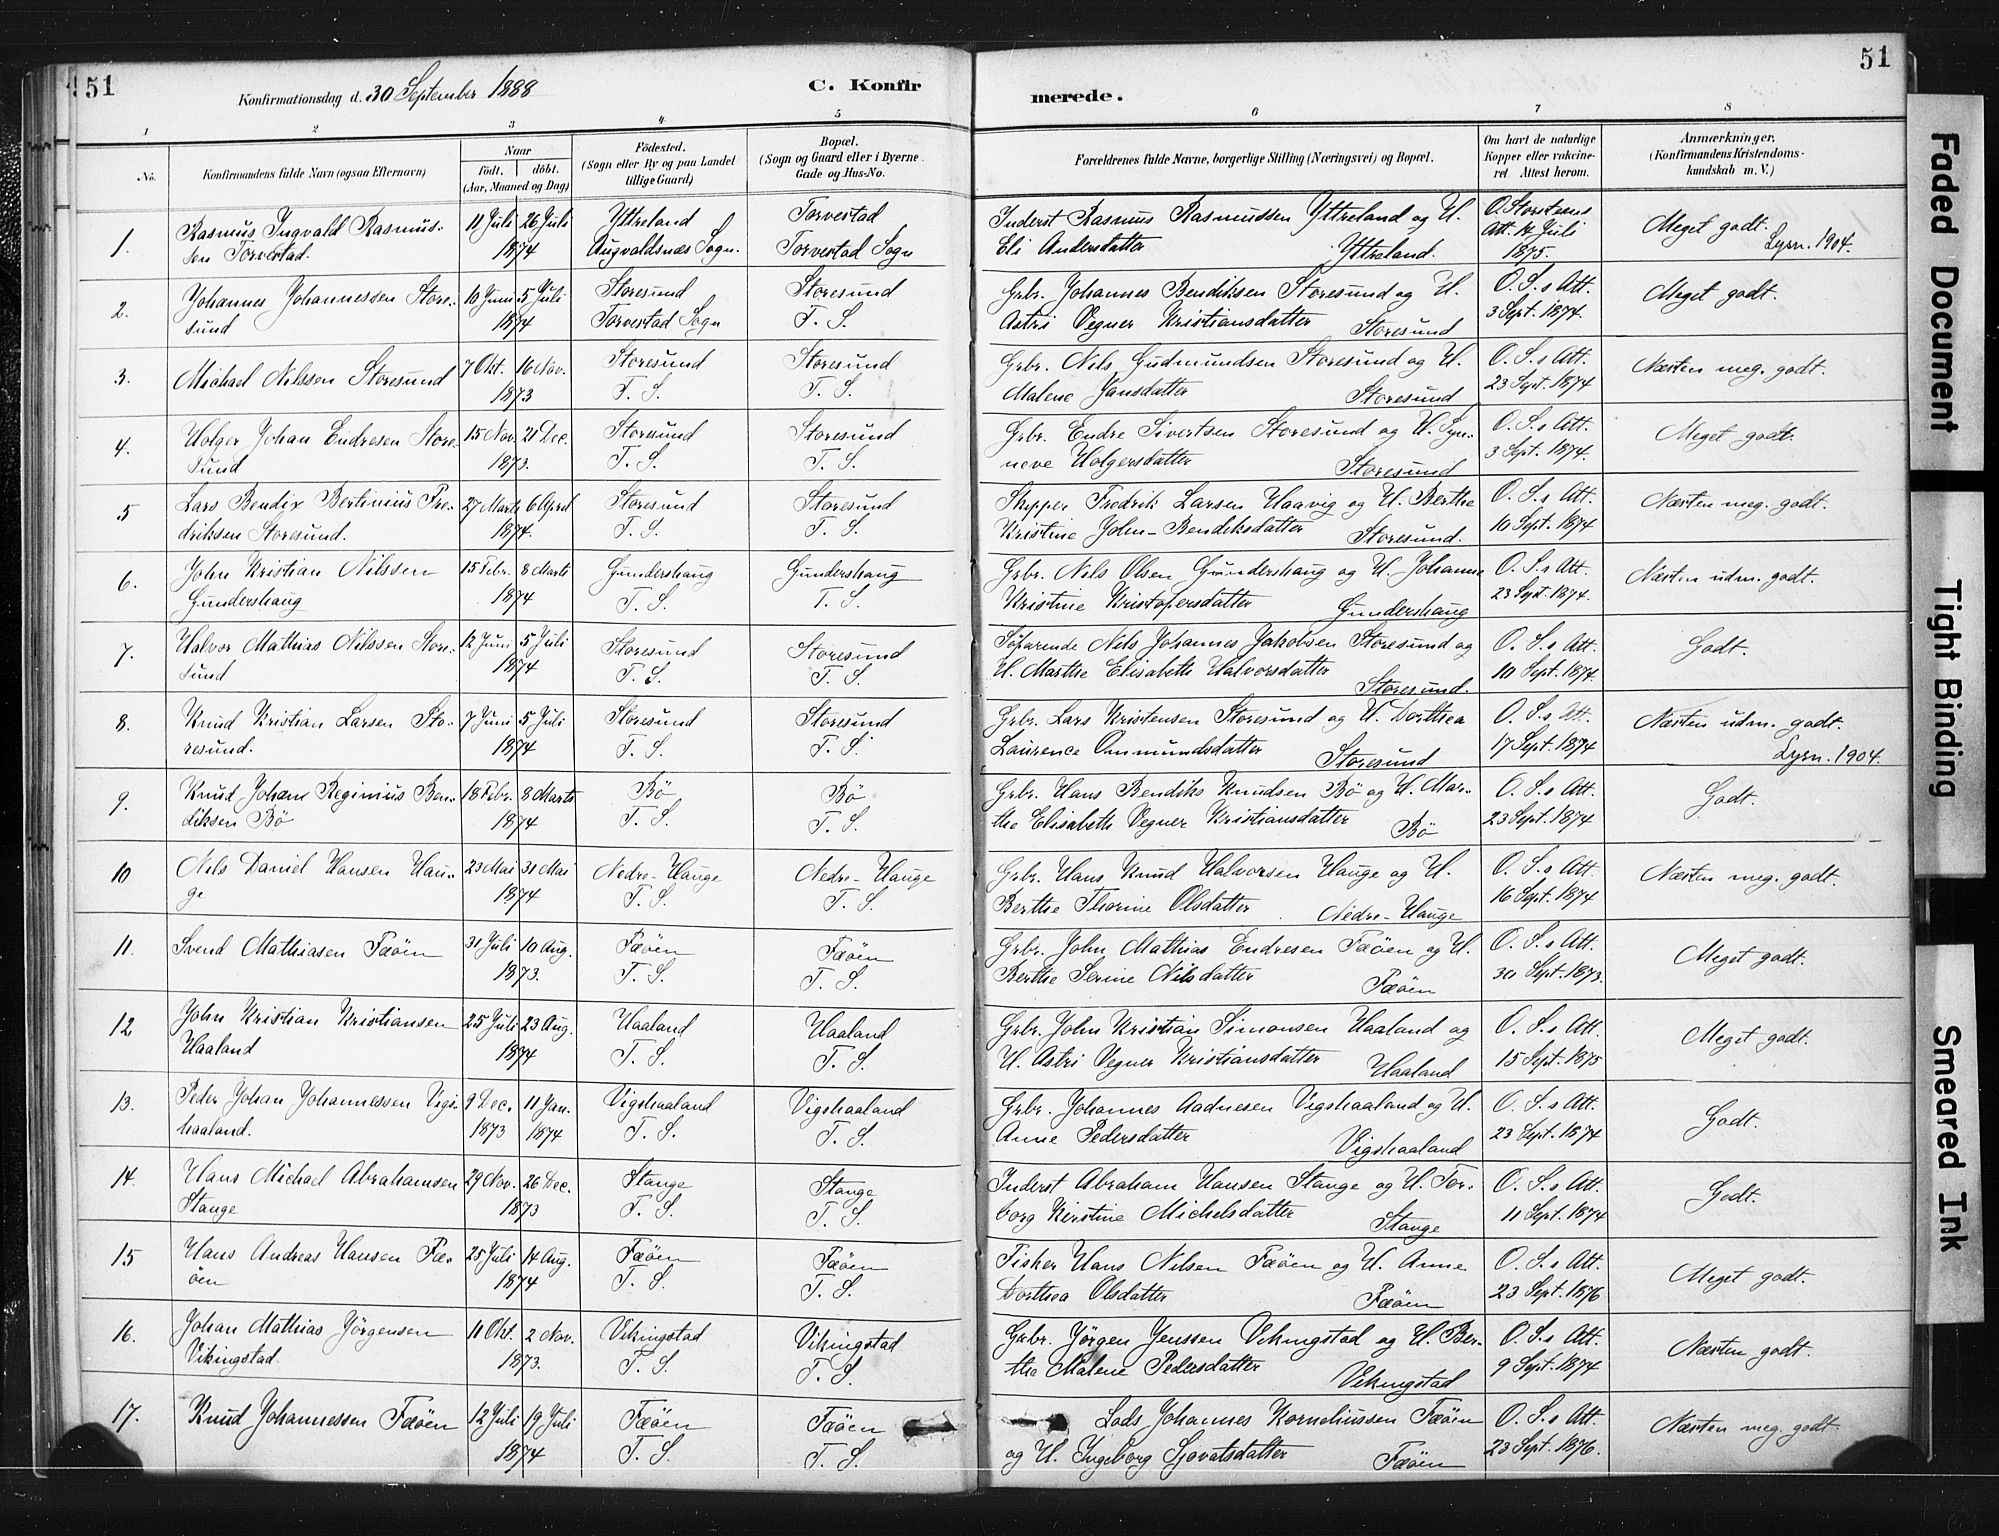 51
Konfirmationsdag d. 30 September 1888
C. Konfirmerede.
51
1 2 3 4 5 6 7 8
No.
Konfirmandens fulde Navn (ogsaa Efternavn)
Naar
födt. döbt.
(Aar, Maaned og Dag)
Födested.
(Sogn eller By og paa Landet
tillige Gaard)
Bopæl.
(Sogn og Gaard eller i Byerne
Gade og Hus-No.
Forældrenes fulde Navne, borgerlige Stilling (Næringsvei) og Bopæl.
Om havt de naturlige
Kopper eller vakcine-
ret. Attest herom.
Anmærkninger.
(Konfirmandens Kristendoms-
kundskab m. V.)
1. Rasmus Ingvald Rasmus- 11 Juli 26 Juli Yttreland Torvestad Inderst Rasmus Rasmussen Yttreland og H. O. Storstens Meget godt.
sen Torvestad. 1874 Augvaldsnæs Sogn. Torvestad Sogn Eli Andersdatter Yttreland. Att. 14 Juli 1875. Lysn. 1904.
2. Johannes Johannessen Store- 10 Juni 5 Juli Storesund Storesund Grbr. Johannes Bendiksen Storesund og H. O. S.s Att. Meget godt.
sund 1874 Torvestad Sogn T. S. Astri Vegner Kristiansdatter Storesund 3 Sept. 1874.
3. Michael Nilssen Storesund 7 Okt. 16 Nov. Storesund Storesund Grbr. Nils Gudmundsen Storesund og H. O. S.s Att. Næsten meg. godt.
1873 T. S. T. S. Malene Jansdatter Storesund 23 Sept. 1874
4. Holger Johan Endresen Store- 15 Nov. 21 Dec. Storesund Storesund Grbr. Endre Sivertsen Storesund og H. Syn- O. S.s Att. Meget godt.
sund 1873. T. S. T. S. neve Holgersdatter Storesund 3 Sept. 1874.
5 Lars Bendix Bertinius Fre- 27 Marts 6 April Storesund Storesund Skipper Fredrik Larsen Haavig og H. Berthe O. S.s Att. Næsten meg. godt.
driksen Storesund. 1874. T. S. T. S. Kristine John-Bendiksdatter Storesund. 10 Sept. 1874
6. John Kristian Nilssen 15 Febr. 8 Marts Gundershaug Gundershaug Grbr. Nils Olsen Gundershaug og H. Johanne O. S.s Att. Næsten udm. godt.
Gundershaug 1874 T. S. T. S. Kristine Kristofersdatter Gundershaug 23 Sept. 1874.
7. Halvor Mathias Nilssen Store- 12 Juni 5 Juli Storesund Storesund Söfarende Nels Johannes Jakobsen Storesund og O. S.s Att. Godt.
sund 1874 T. S. T. S. H. Marthe Elisabeth Halvorsdatter Storesund. 10 Sept. 1874.
8. Knud Kristian Larsen Sto- 7 Juni 5 Juli Storesund Storesund Grbr. Lars Kristensen Storesund og H. Dorthea O. S.s Att. Næsten udm. godt.
resund. 1874 T. S. T. S. Laurence Ommundsdatter Storesund 17 Sept. 1874 Lysn. 1904.
9. Knud Johan Reginius Ben- 18 Febr. 8 Marts Bö Bö Grbr. Hans Bendiks Knudsen Bö og H. Mar- O. S.s Att. Godt.
diksen Bö 1874 T. S. T. S. the Elisabeth Vegner Kristiansdatter Bö 23 Sept. 1874
10 Nels Daniel Hansen Hau- 23 Mai 31 Mai Nedre-Hauge Nedre-Hauge Grbr. Hans Knud Halvorsen Hauge og H. O. S.s Att. Næsten meg. godt.
ge 1874 T. S. T. S. Berthe Thorine Olsdatter Nedre-Hauge 16 Sept. 1874
11. Svend Mathiasen Fæöen 31 Juli 10 Aug. Fæöen Fæöen Grbr. John Mathias Endresen Fæöen og H. O. S.s Att. Meget godt.
1873. T. S. T. S. Berthe Serine Nilsdatter Fæöen 30 Sept. 1873.
12 John Kristian Kristiansen 25 Juli 23 Aug. Haaland Haaland Grbr. John Kristian Simonsen Haaland og O. S.s Att. Meget godt.
Haaland 1874 T. S. T. S. H. Astri Vegner Kristiansdatter Haaland 15 Sept. 1875
13. Peder Johan Johannessen Vigs- 9 Dec. 11 Jan. Vigshaaland Vigshaaland Grbr. Johannes Aadnesen Vigshaaland og H. O. S.s Att. Godt.
haaland. 1873 1874 T. S. T. S. Anne Pedersdatter Vigshaaland 23 Sept. 1874
14. Hans Michael Abrahamsen 29 Nov. 26 Dec. Stange Stange Inderst Abraham Hansen Stange og H. Tor- O. S.s Att. Godt.
Stange 1873 T. S. T. S. borg Kirstine Michelsdatter Stange 11 Sept. 1874
15 Hans Andreas Hansen Fæ- 25 Juli 14 Aug. Fæöen Fæöen Fisker Hans Nilsen Fæöen og H. Anne O. S.s Att. Meget godt.
öen 1874 T. S. T. S. Dorthea Olsdatter Fæöen 23 Sept. 1876
16. Johan Mathias Jörgensen 11 Okt. 2 Nov. Vikingstad Vikingstad Grbr. Jörgen Jenssen Vikingstad og H. Ber- O. S.s Att. Næsten godt.
Vikingstad. 1873. T. S. T. S. the Malene Pedersdatter Vikingstad 9 Sept. 1874
17. Knud Johannessen Fæöen 12 Juli 19 Juli Fæöen Fæöen Lods Johannes Korneliussen Fæöen O. S.s Att. Næsten meg. godt.
1874 T. S. T. S. og H. Ingeborg Sjovatsdatter Fæöen 23 Sept. 1876.
Faded Document
Tight Binding
Smeared Ink